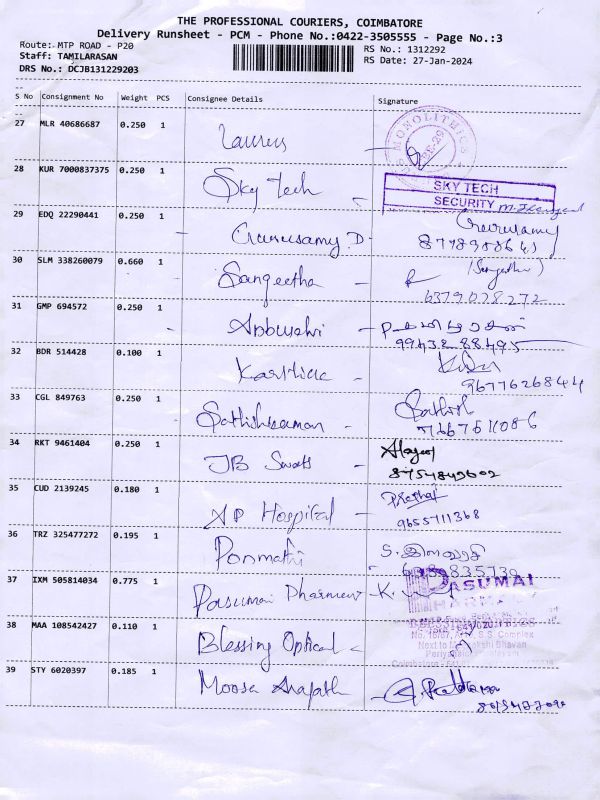 THE PROFESSIONAL COURIERS, COIMBATORE
Delivery Runsheet - PCM - Phone No.:0422-3505555 - Page No.:3
Route: MTP ROAD - P20
RS No.: 1312292
Staff: TAMILARASAN
RS Date: 27-Jan-2024
DRS No.: DCJB131229203
S No Consignment No Weight PCS Consignee Details Signature
27 MLR 40686687 0.250 1
28 KUR 7000837375 0.250 1 Sky tech
SKY TECH
SECURITY
29 EDQ 22290441 0.250 1 Gurusamy D
30 SLM 338260079 0.660 1 Sangeetha - (Sangeetha)
6379028272
31 GMP 694572 0.250 1
99432 88495
32 BDR 514428 0.100 1 Karthick -
9677626844
33 CGL 849763 0.250 1 Sathish
34 RKT 9461404 0.250 1 JB -
8754849602
35 CUD 2139245 0.180 1 AP Hospital -
9655711368
36 TRZ 325477272 0.195 1 Ponmathi
37 IXM 505814034 0.775 1 Pasumai - K.
PASUMAI
PHARMA
38 MAA 108542427 0.110 1 Blessing Optical
S.S. Complex
Next to
Bhavan
39 STY 6020397 0.185 1 Moosa Arafath